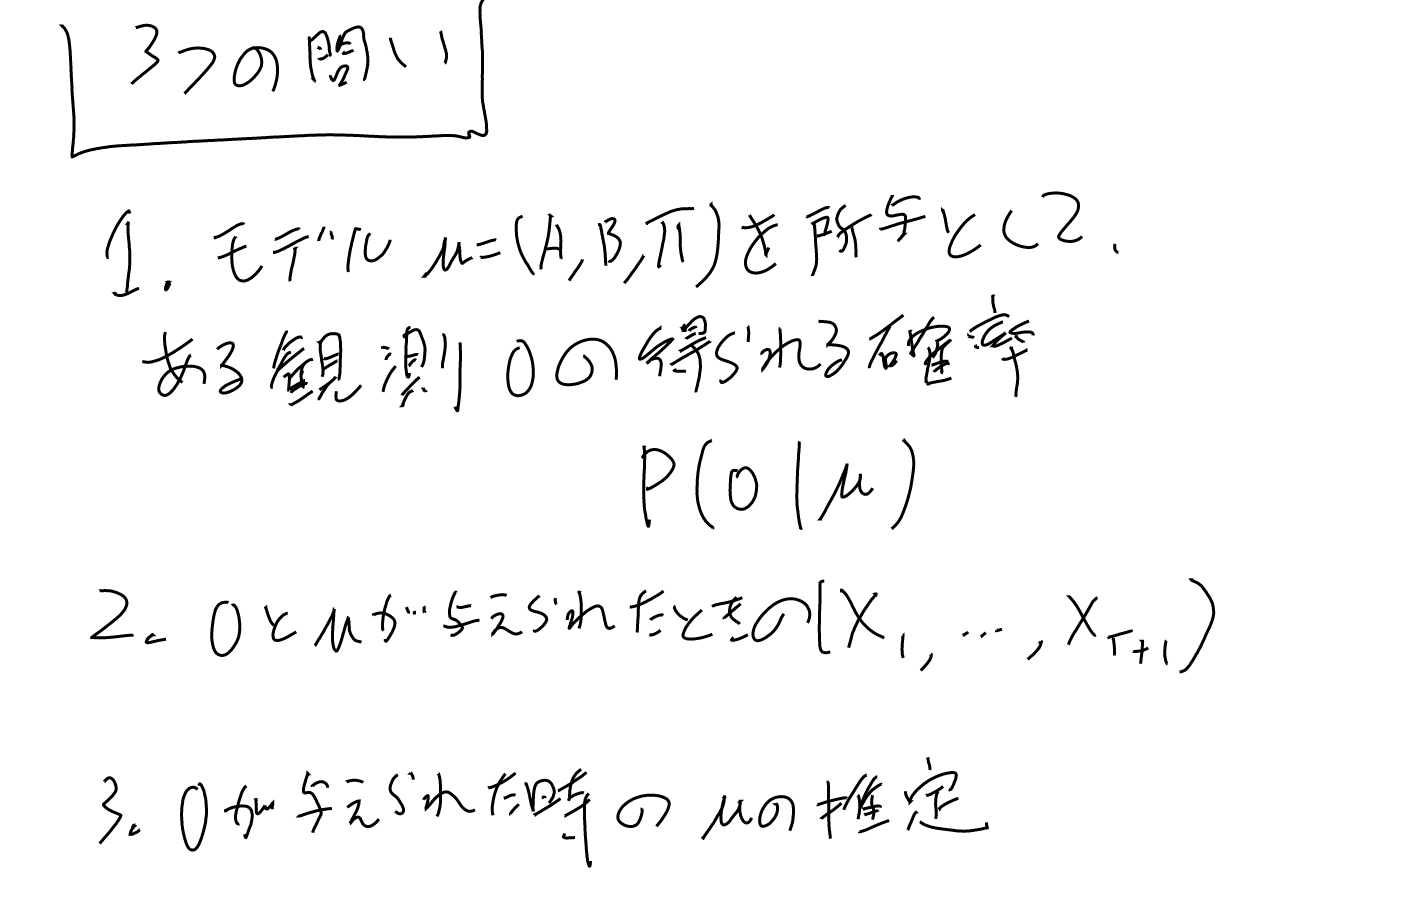 3つの問い
1. モデル μ=(A,B,π)を所与として、
ある観測Oの得られる確率
P(O|μ)
2. Oとμが与えられたときの(X₁, …, X_T+1)
3. Oが与えられた時のμの推定